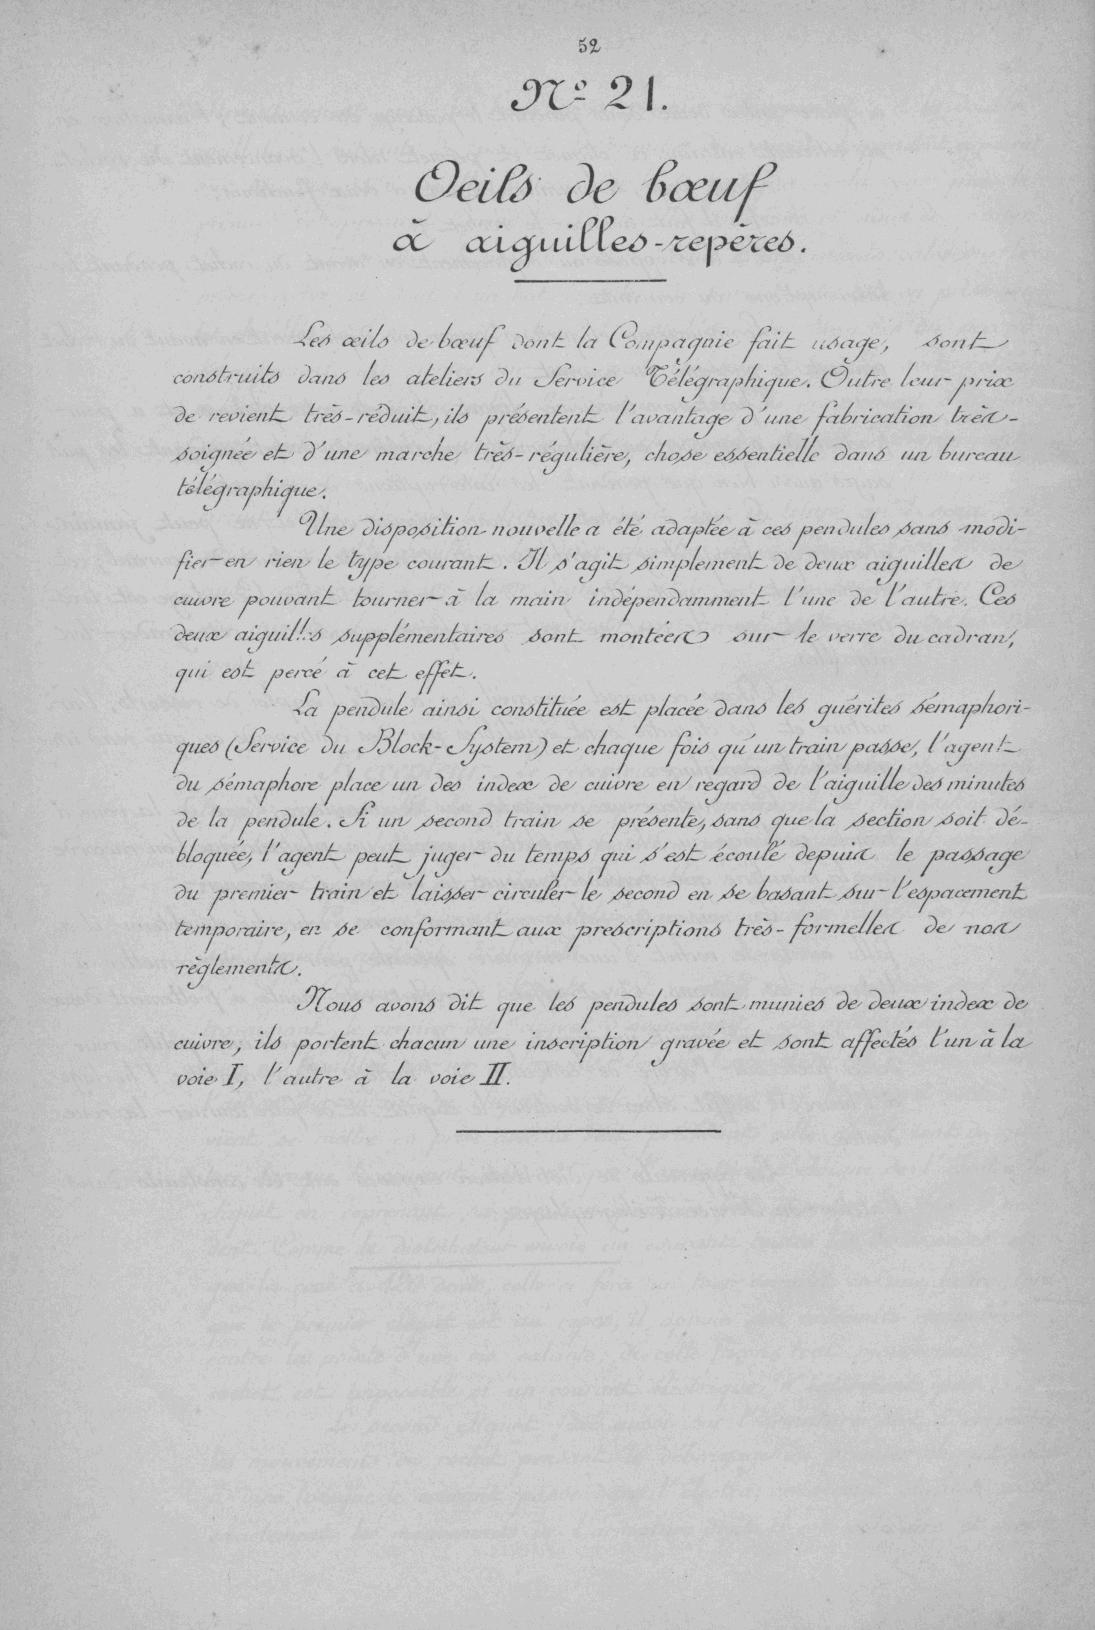 52
No 21.
Oeils de bœuf
à aiguilles-repères.
Les œils de bœuf dont la Compagnie fait usage, sont
construits dans les ateliers du Service Télégraphique. Outre leur prix
de revient très-réduit, ils présentent l'avantage d'une fabrication très-
soignée et d'une marche très-régulière, chose essentielle dans un bureau
télégraphique.
Une disposition nouvelle a été adaptée à ces pendules sans modi-
fier en rien le type courant. Il s'agit simplement de deux aiguilles de
cuivre pouvant tourner à la main indépendamment l'une de l'autre. Ces
deux aiguilles supplémentaires sont montées sur le verre du cadran,
qui est percé à cet effet.
La pendule ainsi constituée est placée dans les guérites sémaphori-
ques (Service du Block-System) et chaque fois qu'un train passe, l'agent
du sémaphore place un des index de cuivre en regard de l'aiguille des minutes
de la pendule. Si un second train se présente, sans que la section soit dé-
bloquée, l'agent peut juger du temps qui s'est écoulé depuis le passage
du premier train et laisser circuler le second en se basant sur l'espacement
temporaire, en se conformant aux prescriptions très-formelles de nos
règlements.
Nous avons dit que les pendules sont munies de deux index de
cuivre, ils portent chacun une inscription gravée et sont affectés l'un à la
voie I, l'autre à la voie II.